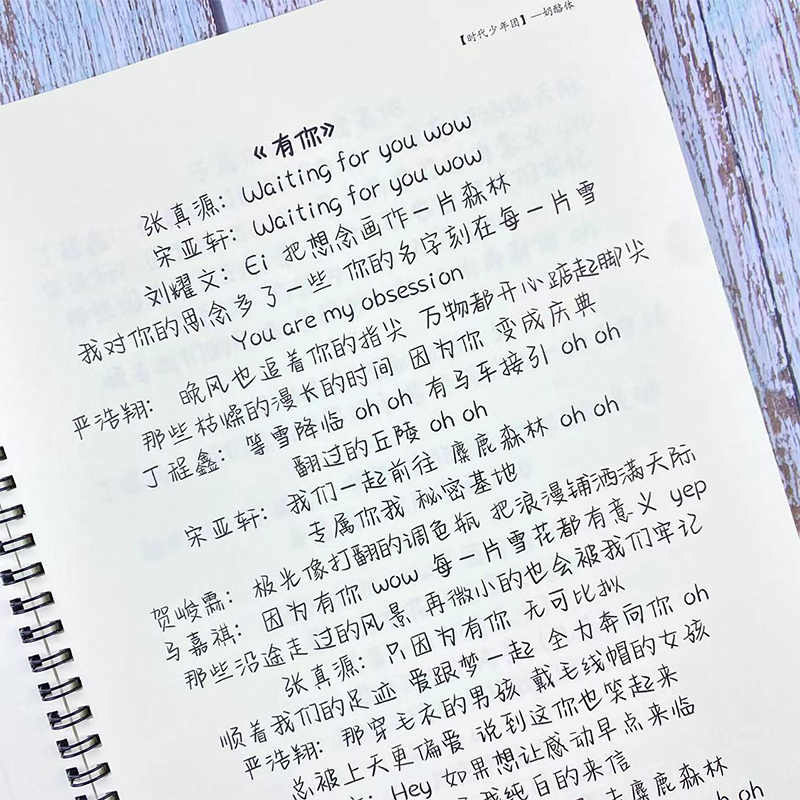 【时代少年团】—奶酪体
《有你》
张真源: Waiting for you wow
宋亚轩: Waiting for you wow
刘耀文: Ei 把想念画作一片森林
我对你的思念多了一些 你的名字刻在每一片雪
You are my obsession
严浩翔: 晚风也追着你的指尖 万物都开心踮起脚尖
那些枯燥的漫长的时间 因为你 变成庆典
丁程鑫: 等雪降临 oh oh 有马车接引 oh oh
翻过的丘陵 oh oh
宋亚轩: 我们一起前往 麋鹿森林 oh oh
专属你我 秘密基地
贺峻霖: 极光像打翻的调色瓶 把浪漫铺洒满天际
马嘉祺: 因为有你 wow 每一片雪花都有意义 yep
那些沿途走过的风景 再微小的也会被我们牢记
张真源: 只因为有你 无可比拟
顺着我们的足迹 爱跟梦一起 全力奔向你 oh
严浩翔: 那穿毛衣的男孩 戴毛线帽的女孩
总被上天更偏爱 说到这你也笑起来
: Hey 如果想让感动早点来临
我纯白的来信
麋鹿森林
oh